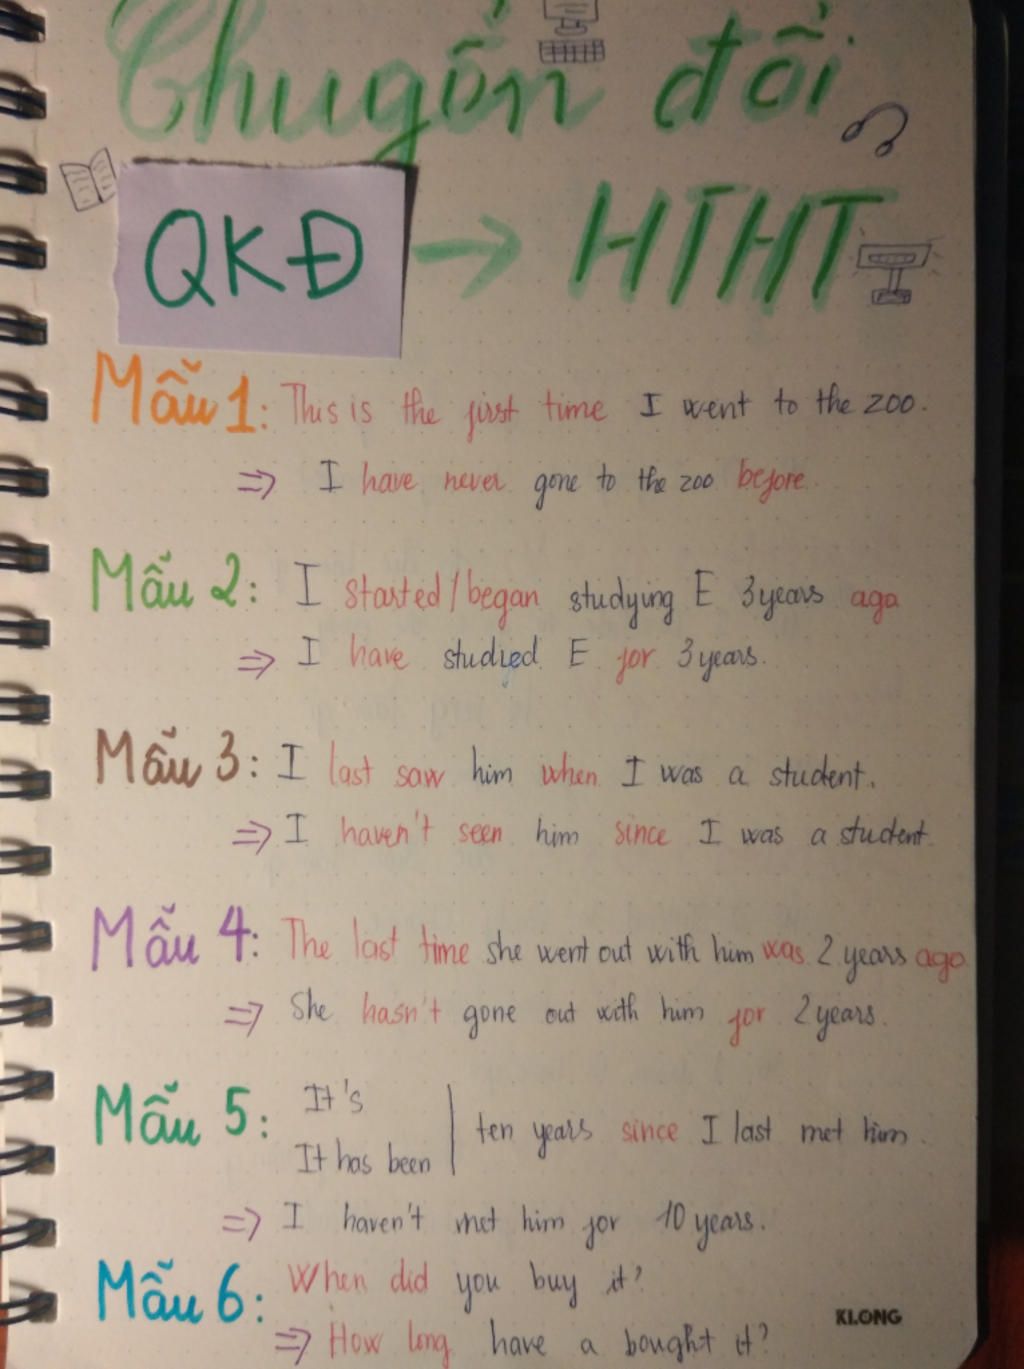 Chuyển đổi
QKĐ → HTHT
Mẫu 1: This is the first time I went to the zoo.
⇒ I have never gone to the zoo before.
Mẫu 2: I started/began studying E 3 years ago
⇒ I have studied E for 3 years.
Mẫu 3: I last saw him when I was a student.
⇒ I haven't seen him since I was a student.
Mẫu 4: The last time she went out with him was 2 years ago
⇒ She hasn't gone out with him for 2 years.
Mẫu 5: It's
It has been | ten years since I last met him.
⇒ I haven't met him for 10 years.
Mẫu 6: When did you buy it?
⇒ How long have a bought it?
KLONG